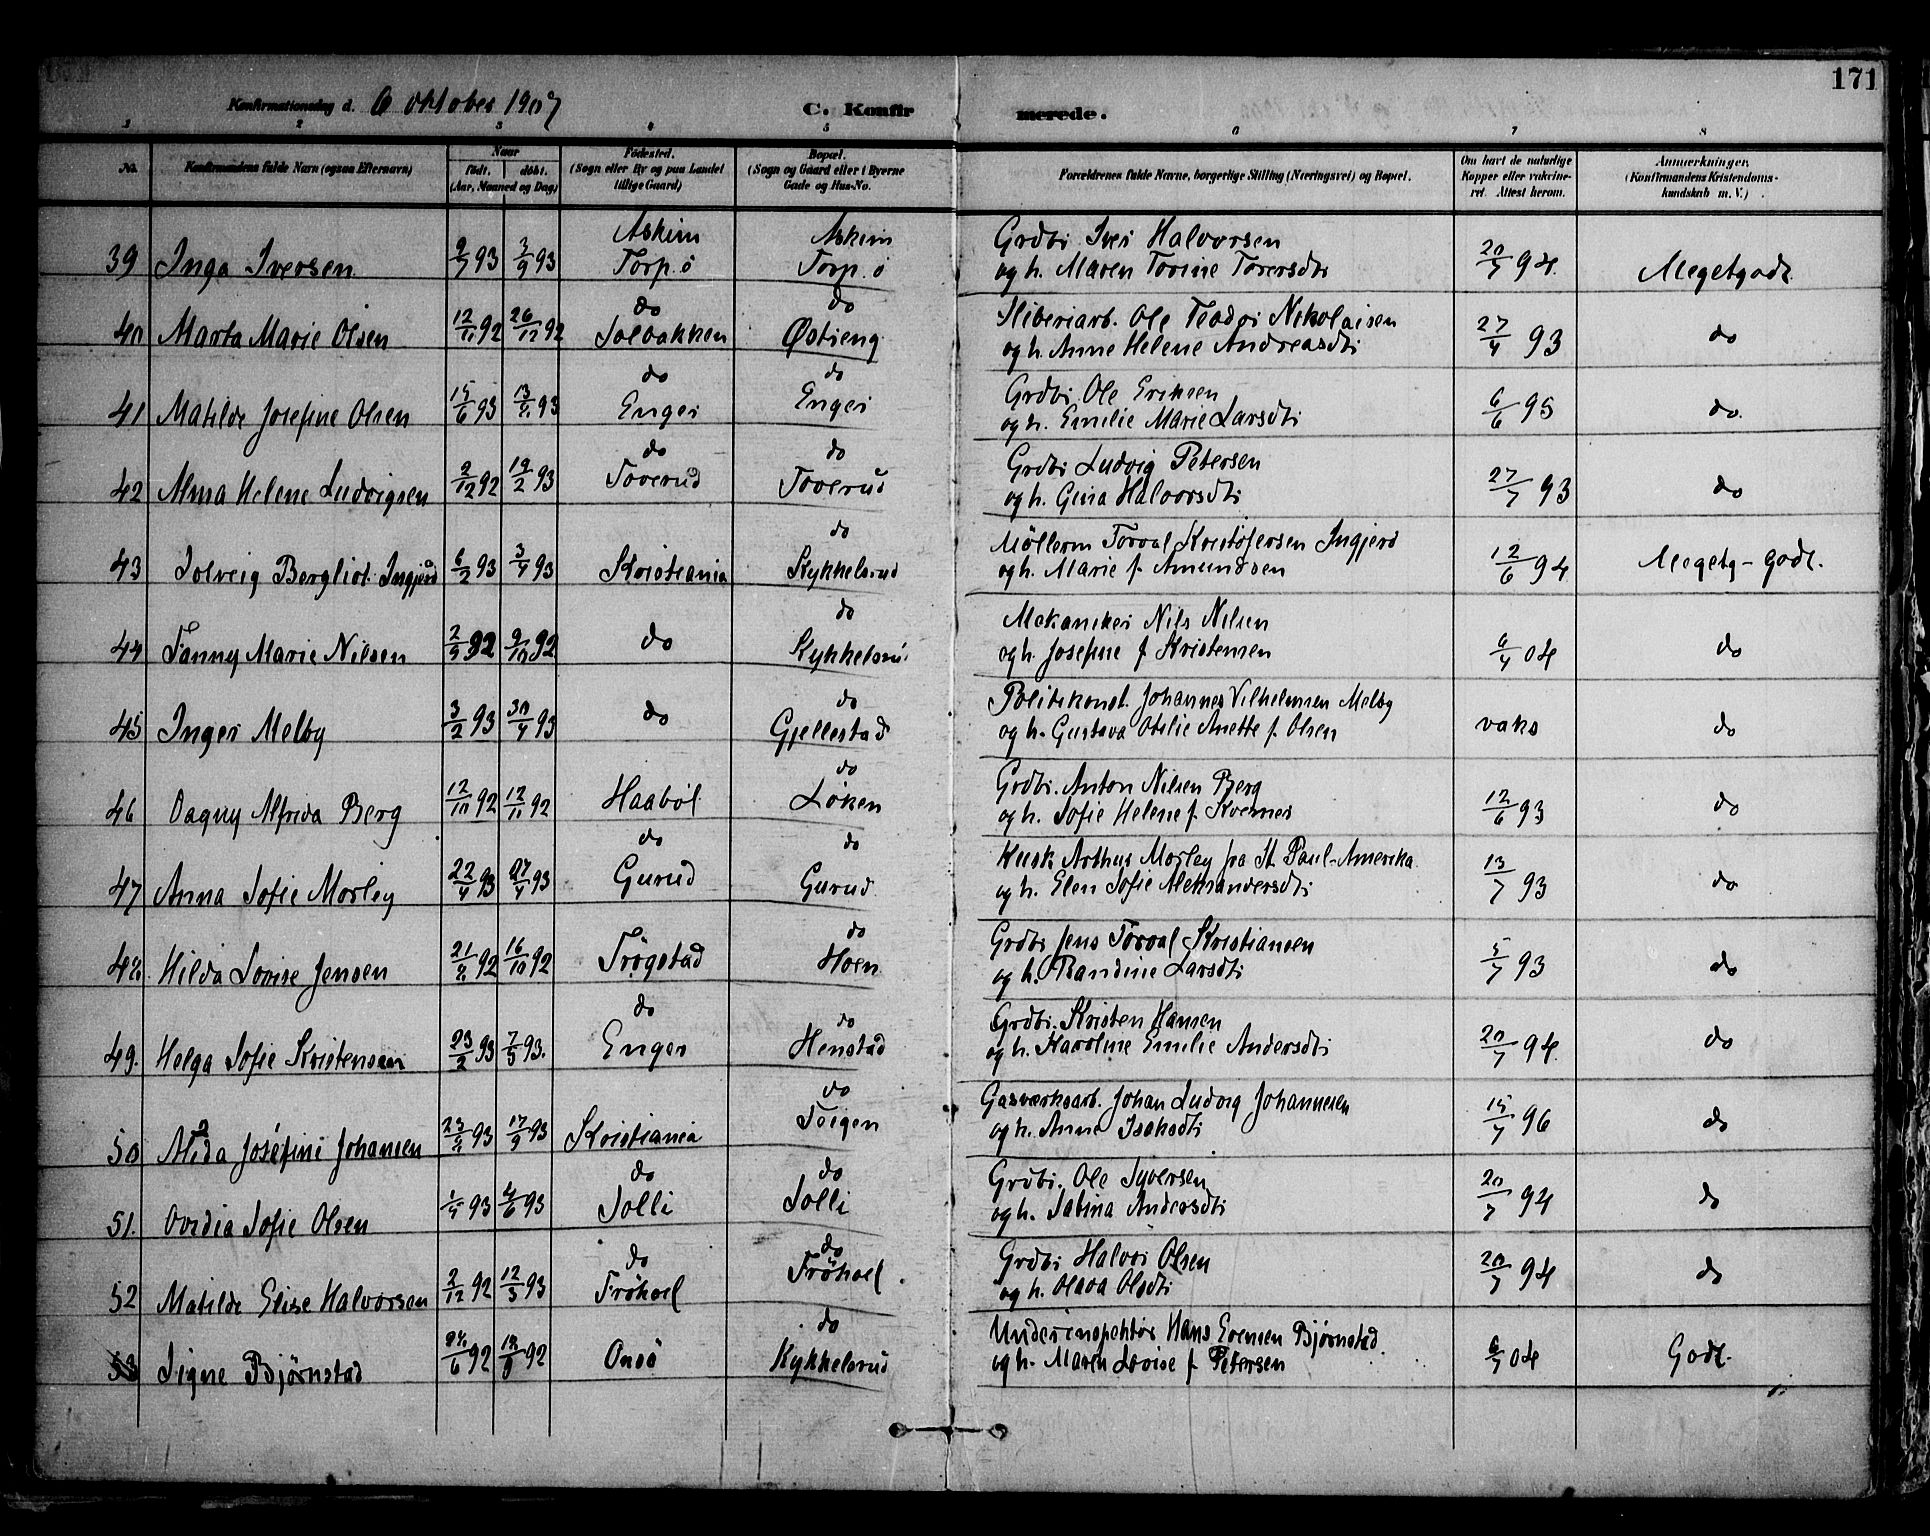 171
Konfirmationsdag d. 6 oktober 1907 C. Konfirmerede.
1 2 3 4 5 6 7 8
No. Konfirmandens fulde Navn (ogsaa Efternavn) Naar født. døbt. (Aar, Maaned og Dag) Fødested. (Sogn eller By og paa Landet tillige Gaard) Bopæl. (Sogn og Gaard eller i Byerne Gade og Hus-No. Forældrenes fulde Navne, borgerlige Stilling (Næringsvei) og Bopæl. Om havt de naturlige Kopper eller vakcineret. Attest herom. Anmærkninger. (Konfirmandens Kristendomskundskab m. V.)
Askim Askim Grdbr Iver Halvorsen
39 Inga Iversen 9/7 93 3/9 93 Torp ø Torp ø og h. Maren Torine Torersdtr 20/7 94. Megetgodt.
do do Sliberiarb. Ole Teodor Nikolaisen
40 Marta Marie Olsen 12/11 92 26/12 92 Solbakken Østreng og h. Anne Helene Andreasdtr 27/4 93 do
do do Grdbr Ole Eriksen
41 Matilde Josefine Olsen 15/6 93 13/8 93 Enger Enger og h. Emilie Marie Larsdtr 6/6 95 do.
do do Grdbr Ludvig Petersen
42 Alma Helene Ludvigsen 2/12 92 19/2 93 Toverud Toverud og h. Gina Halvorsdtr 27/7 93 do
do Møllerm Torval Kristofersen Ingjerd
43 Solveig Bergliot Ingjerd 6/2 93 3/4 93 Kristiania Kykkelsrud og h. Marie f. Amundsen 12/6 94 Megetg-Godt.
do Mekaniker Nils Nilsen
44 Fanny Marie Nilsen 2/9 92 9/10 92 do Kykkelsru og h. Josefine f Kristensen 6/4 04 do
do Politikonst. Johannes Vilhelmsen Melby
45 Inger Melby 3/2 93 30/4 93 do Gjellestad og h. Gustava Otilie Anette f. Olsen vaks do
do Grdbr. Anton Nilsen Berg
46 Dagny Alfrida Berg 12/10 92 12/11 92 Haabøl Løken og h. Sofie Helene f. Kvernes 12/6 93 do
do do Kusk Arthur Morley fra St Paul-Amerika
47 Anna Sofie Morley 22/4 93 27/4 93 Gurud Gurud og h. Elen Sofie Aleksandersdtr 13/7 93 do
do Grdbr Jens Torval Kristiansen
48. Hilda Lovise Jensen 21/8 92 16/10 92 Trøgstad Hoen og h. Randine Larsdtr 5/7 93 do
do do Grdbr. Kristen Hansen
49. Helga Sofie Kristensen 23/2 93 7/5 93. Enger Henstad og h. Karoline Emilie Andersdtr 20/7 94. do
do Gasværksarb. Johan Ludvig Johannesen
50 Alida Josefine Johansen 23/8 93 17/9 93 Kristiania Teigen og h. Anne Isaksdtr 15/7 96 do
do do Grdbr. Ole Syversen
51. Ovidia Sofie Olsen 1/4 93 4/6 93 Solli Solli og h. Sabina Andersdtr 20/7 94 do
do do Grdbr Halvor Olsen
52 Matilde Elise Halvorsen 2/12 92 12/3 93 Frøhoel Frøhoel og h. Olava Olsdtr 20/7 94 do
do Underinspektør Hans Evensen Bjørnstad.
53 Signe Bjørnstad 24/6 92 18/9 92 Onsø Kykkelsrud og h. Maren Lovise f. Petersen 6/7 04 Godt.